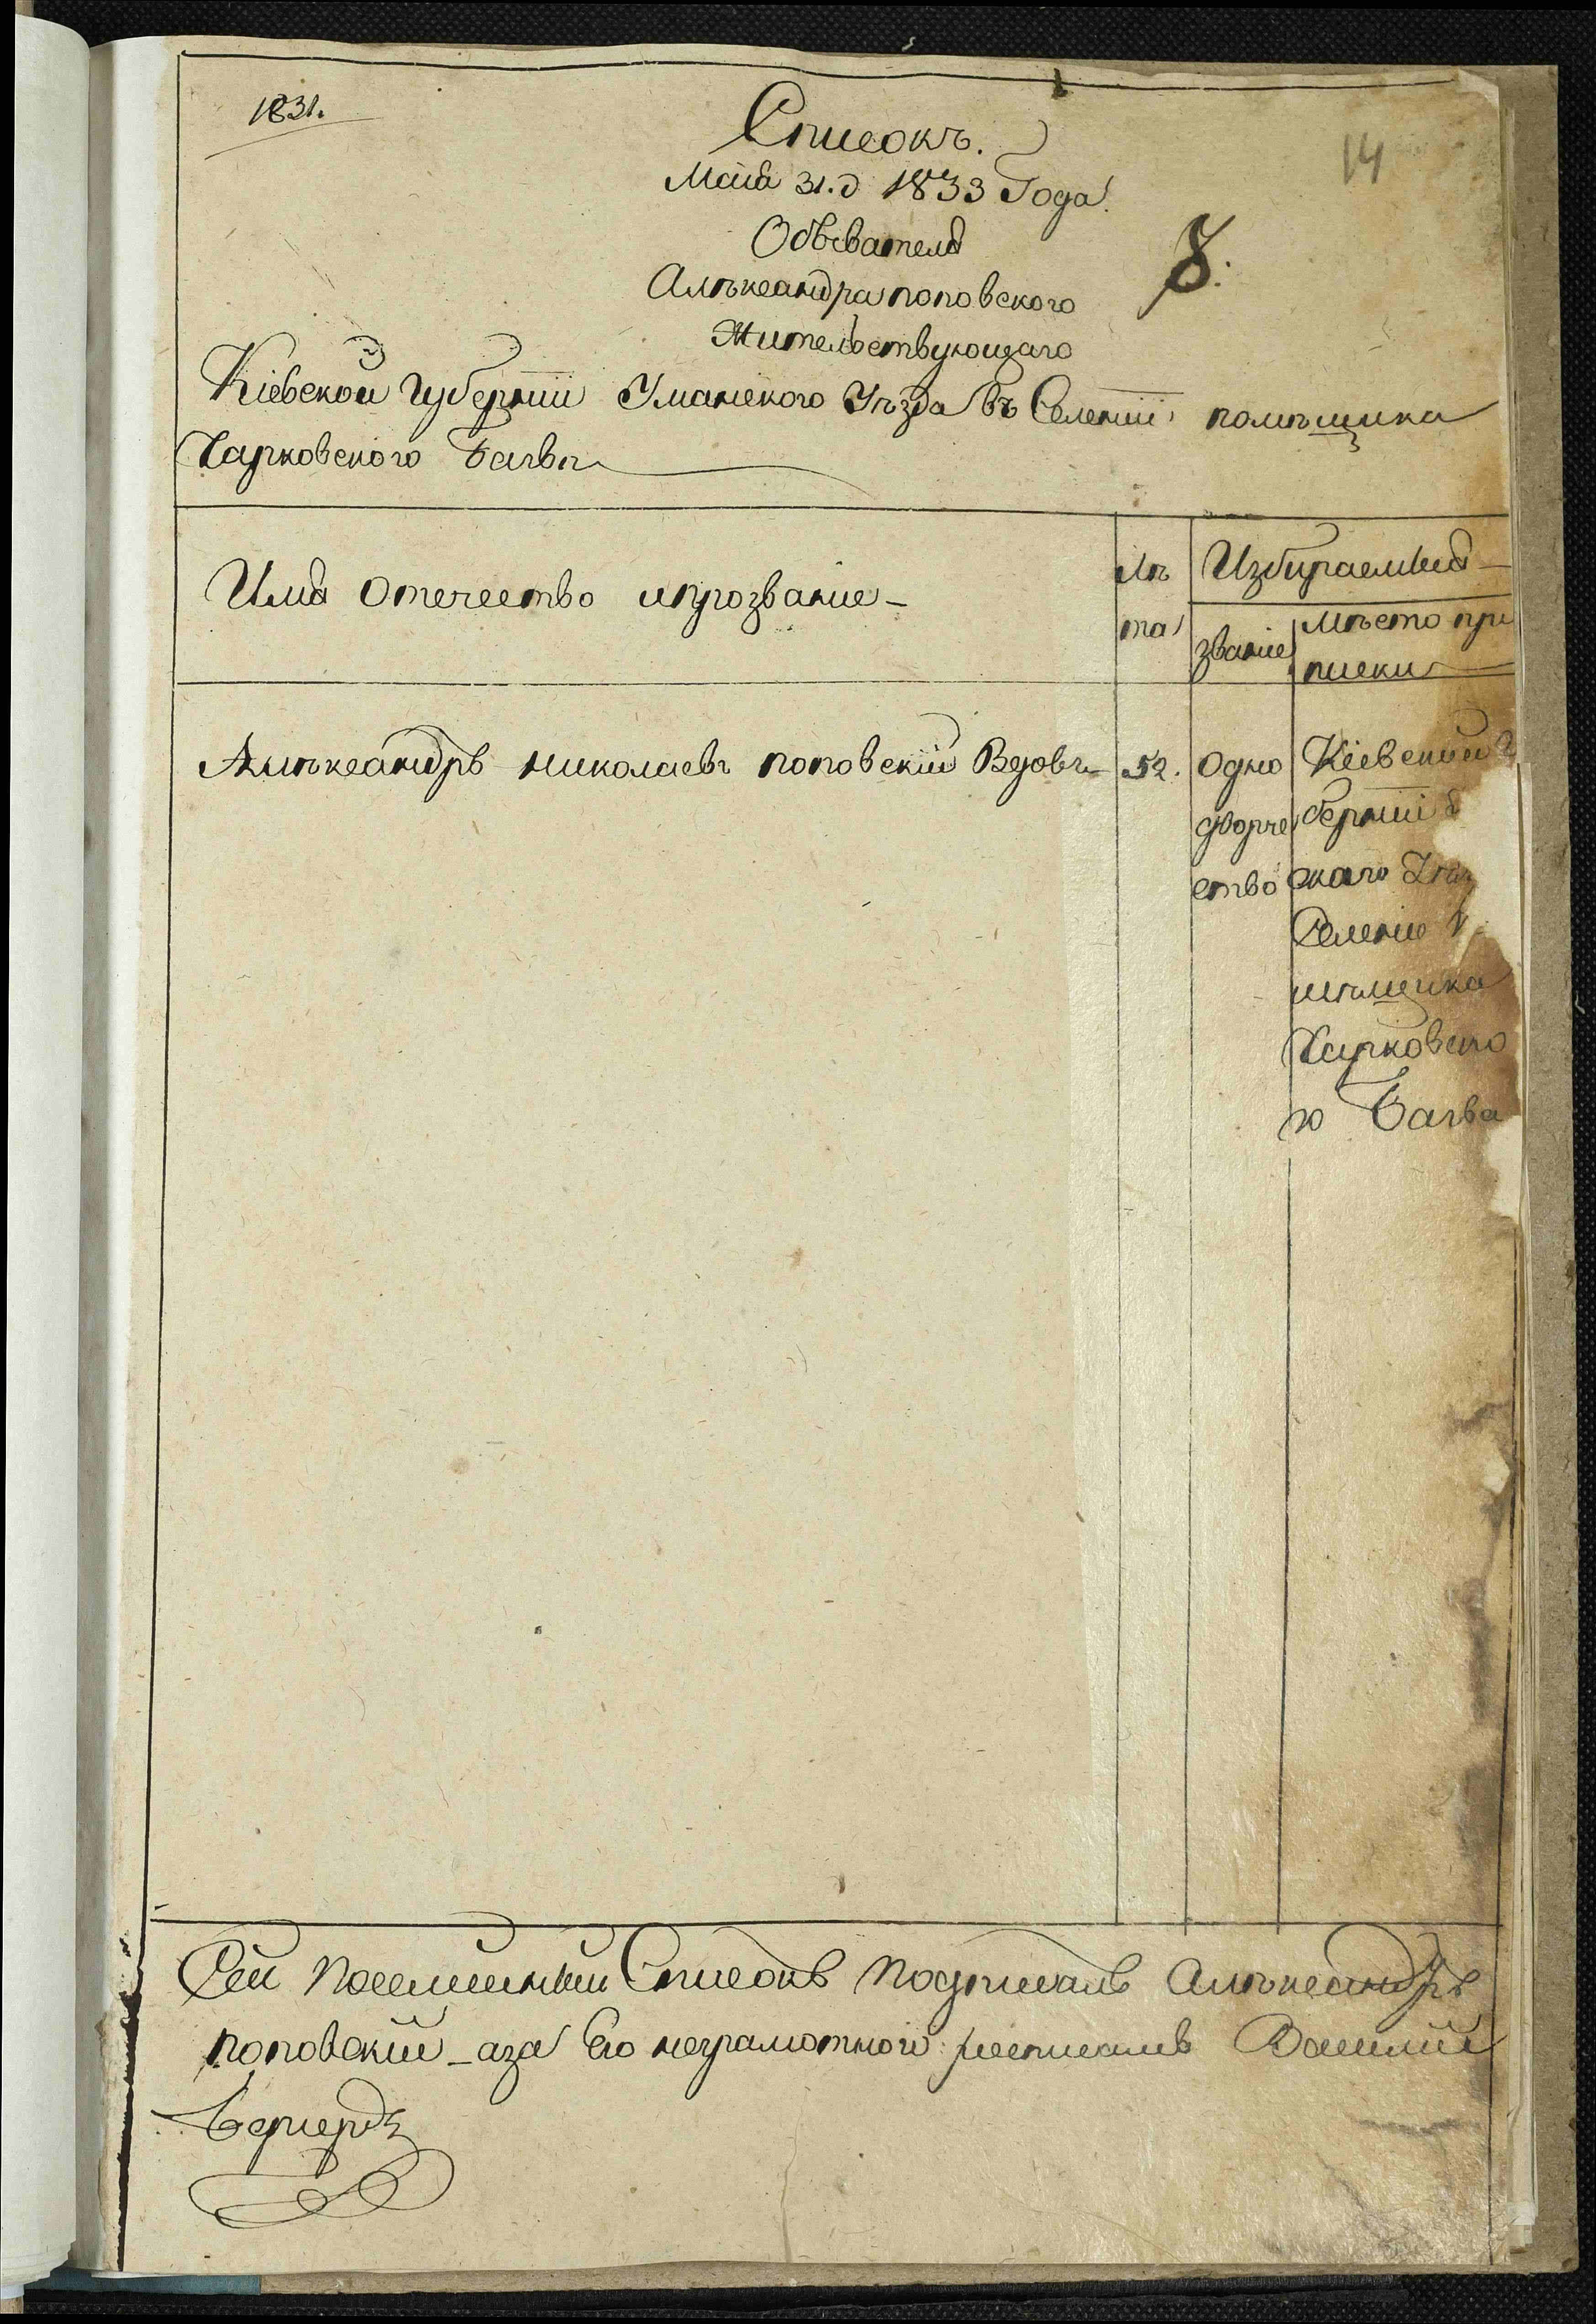 1831.
Списокъ.
14
Маія 31. д 1833 Года.
Обывателя
8.
Алѣксандра поповского
Жительствующаго
Кіевской Губерніи Уманского Уѣзда въ Селеніи помѣщика
Харковского Багвы
Имя Отечество ипрозваніе
Лѣ
та
Избираемыя
званіе
мѣсто при
писки
Алѣксандръ николаевъ поповскій Вдовъ
52.
Одно
дворче
ство
Кіевской
берніи
скаго
Селеніе
мѣщика
Харковско
го Багва
Сей Посемейный Списокъ Подписалъ Алѣксандръ
поповский аза Его неграмотного росписалъ Василий